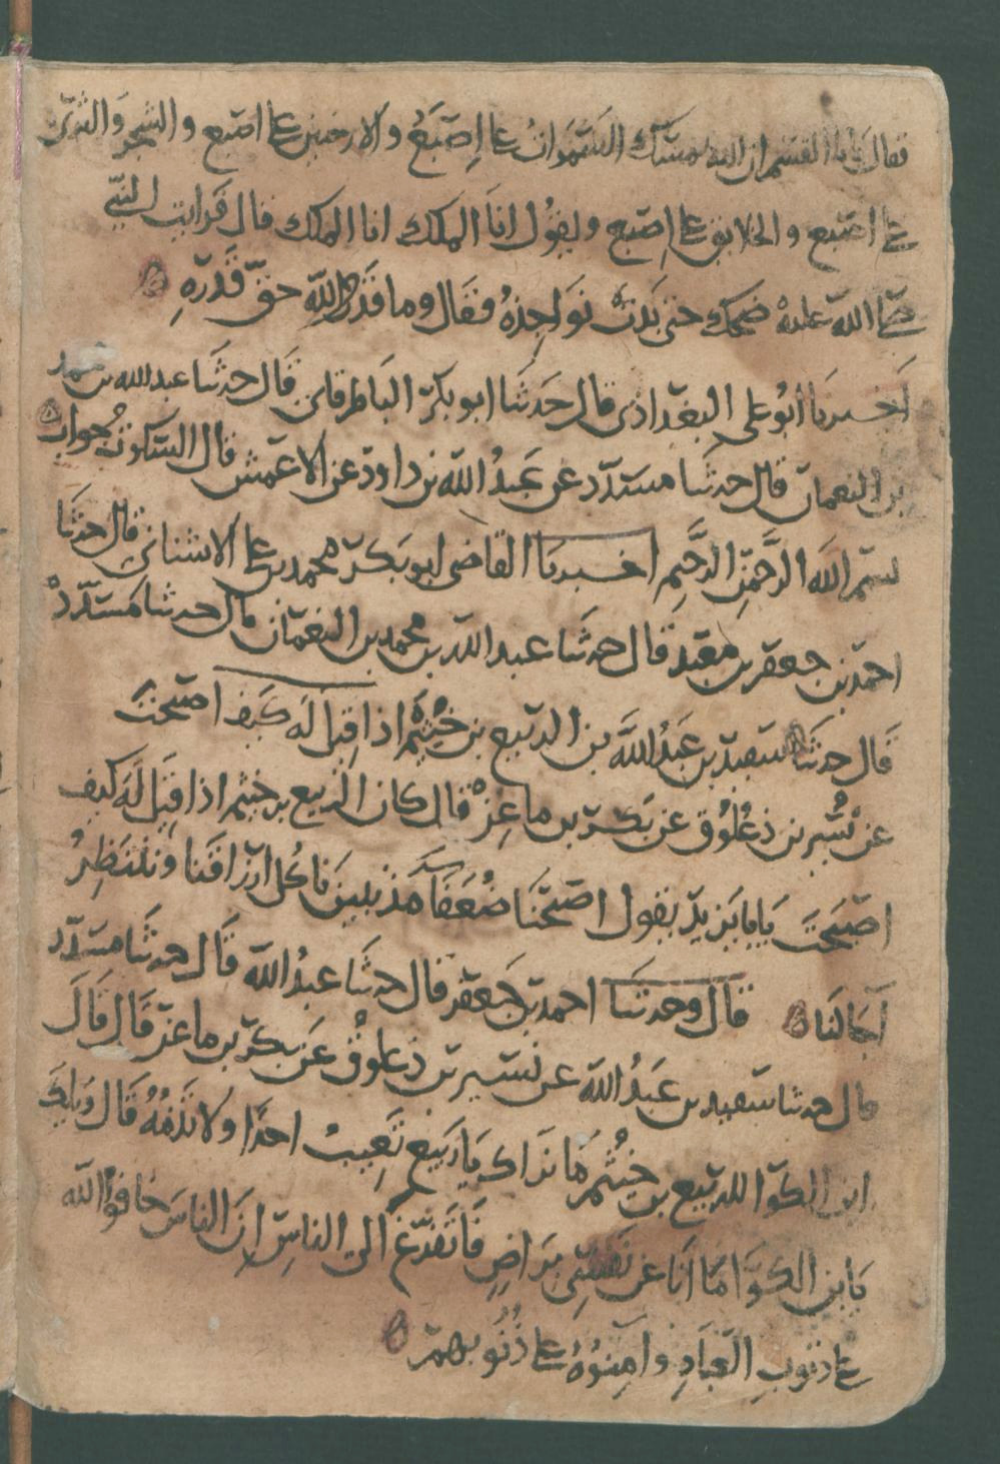 فقال يا ابا القسم ان الله يمسك السموات على اصبع والارضين على اصبع والشجر والثرى
على اصبع والخلايق على اصبع ويقول انا الملك انا الملك قال فرايت النبي
صلى الله عليه ضحك حتى بدت نواجذه فقال وما قدروا الله حق قدره
اخبرنا ابو علي البغداذي قال حدثنا ابو بكر الباطرقاني قال حدثنا عبد الله بن محمد
بن النعمان قال حدثنا مسدد عن عبد الله بن داود عن الاعمش قال السكوت جواب
بسم الله الرحمن الرحيم اخبرنا القاضي ابو بكر محمد بن علي الاشناني قال حدثنا
احمد بن جعفر بن معبد قال حدثنا عبد الله بن محمد بن النعمان قال حدثنا مسدد
قال حدثنا سعيد بن عبد الله بن الربيع بن خثيم اذا قيل له كيف اصبحت
عن نسير بن ذعلوق عن بكر بن ماعز قال كان الربيع بن خثيم اذا قيل له كيف
اصبحت يابا يزيد يقول اصبحنا ضعفا مذنبين ناكل ارزاقنا وننتظر
آجالنا قال وحدثنا احمد بن جعفر قال حدثنا عبد الله قال حدثنا مسدد
قال حدثنا سعيد بن عبد الله عن نسير بن ذعلوق عن بكر بن ماعز قال قال
ابن الكوا للربيع بن خثيم ما نراك يا ربيع تعيب احدا ولا تذمه قال ويلك
يا بن الكوا ما انا عن نفسي براض فاتفرغ الى الناس ان الناس خافوا الله
على ذنوب العباد وامنوه على ذنوبهم